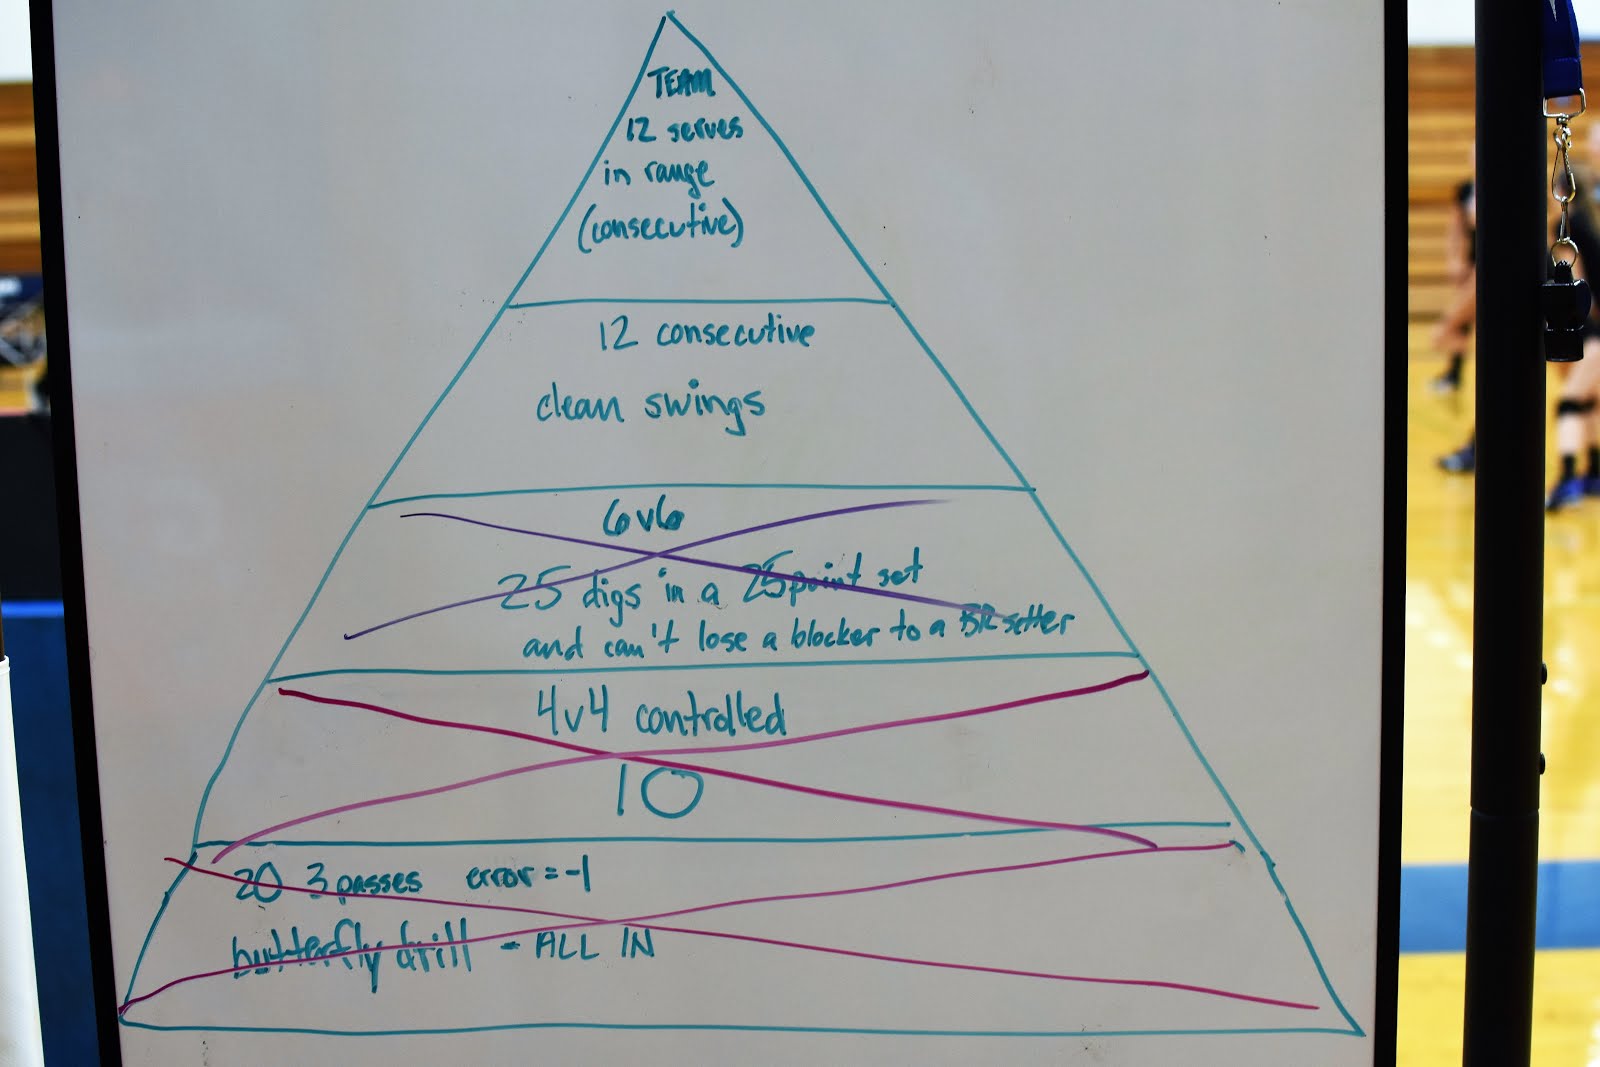 TEAM
12 serves
in range
(consecutive)
12 consecutive
clean swings
6v6
25 digs in a 25 point set
and can't lose a blocker to a BR setter
4v4 controlled
10
20 3 passes error = -1
butterfly drill - ALL IN